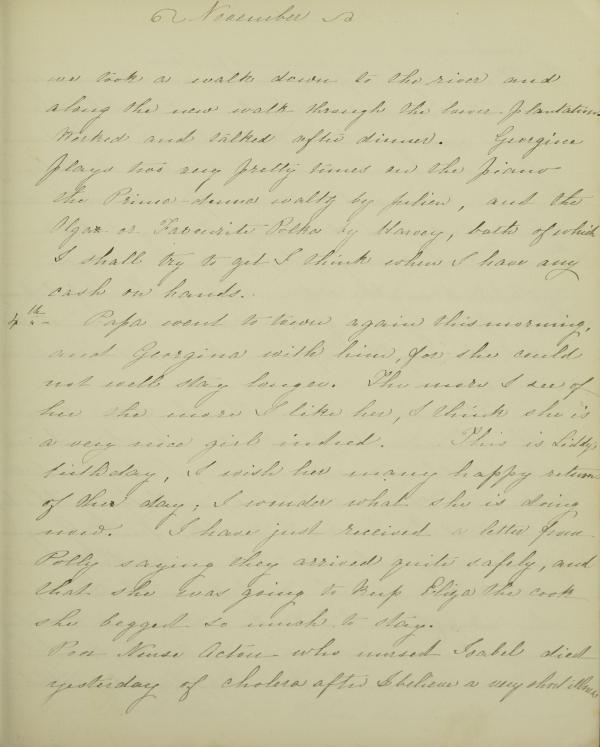 November
we took a walk down to the river and
along the new walk through the lower plantation.
Worked and talked after dinner. Georgina
plays two very pretty tunes on the piano
the Prima-donna waltz by Julien, and the
Olga or Favourite Polka by Harvey, both of which
I shall try to get I think when I have any
cash on hands.
4th.- Papa went to town again this morning,
and Georgina with him, for she could
not well stay longer. The more I see of
her the more I like her, I think she is
a very nice girl indeed. This is Liddy's
birthday, I wish her many happy returns
of the day; I wonder what she is doing
now. I have just received a letter from
Polly saying they arrived quite safely, and
that she was going to keep Eliza the cook
she begged so much to stay.
Poor Nurse Acton who nursed Isabel died
yesterday of cholera after I believe a very short illness